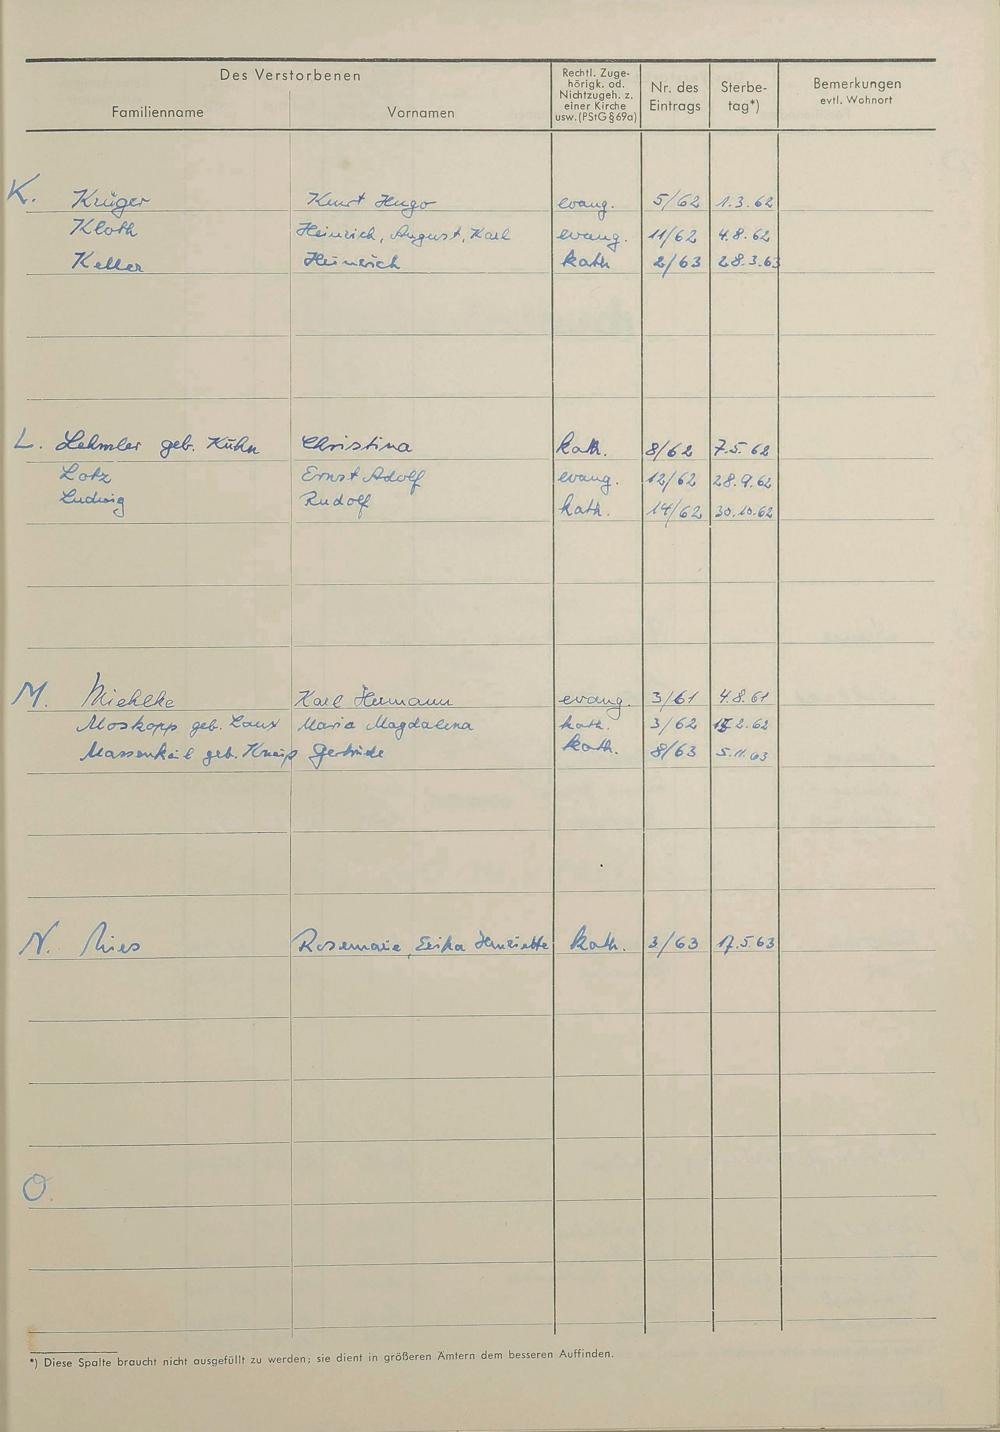 Des Verstorbenen
Familienname Vornamen Rechtl. Zuge-
hörigk. od.
Nichtzugeh. z.
einer Kirche
usw. (PStG § 69a) Nr. des
Eintrags Sterbe-
tag*) Bemerkungen
evtl. Wohnort
K. Krüger Kurt Hugo evang. 5/62 1.3.62
Kloth Heinrich, August, Karl evang. 11/62 4.8.62
Keller Heinrich kath 2/63 28.3.63
L. Lehmler geb. Kuhn Christina kath. 8/62 7.5.62
Lotz Ernst Adolf evang. 12/62 28.9.62
Ludwig Rudolf kath. 14/62 30.10.62
M. Miehlke Karl Hermann evang. 3/61 4.8.61
Moskopp geb. Laux Maria Magdalena kath. 3/62 2.62
Massenkeil geb. Kneip Gertrude kath. 8/63 5.11.63
N. Nies Rosemarie, Erika Henriette kath. 3/63 17.5.63
O.
*) Diese Spalte braucht nicht ausgefüllt zu werden; sie dient in größeren Ämtern dem besseren Auffinden.